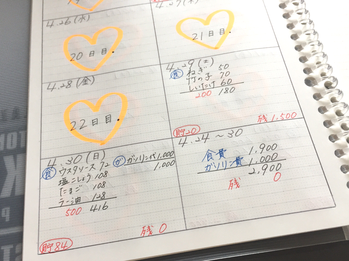 4.26(水)
20日目.
21日目.
4.28(金)
22日目.
4.29(土)
食 ねぎ 50
竹の子 70
しいたけ 60
200 180
貯20
残 1,500
4.30(日)
食 ウスターソース 72
塩こしょう 108
たまご 108
ラー油 128
500 416
ガソリン代 1,000
1,000
貯84
残 0
4.24〜30
食費 1,900
ガソリン費 1,000
2,900
残 0